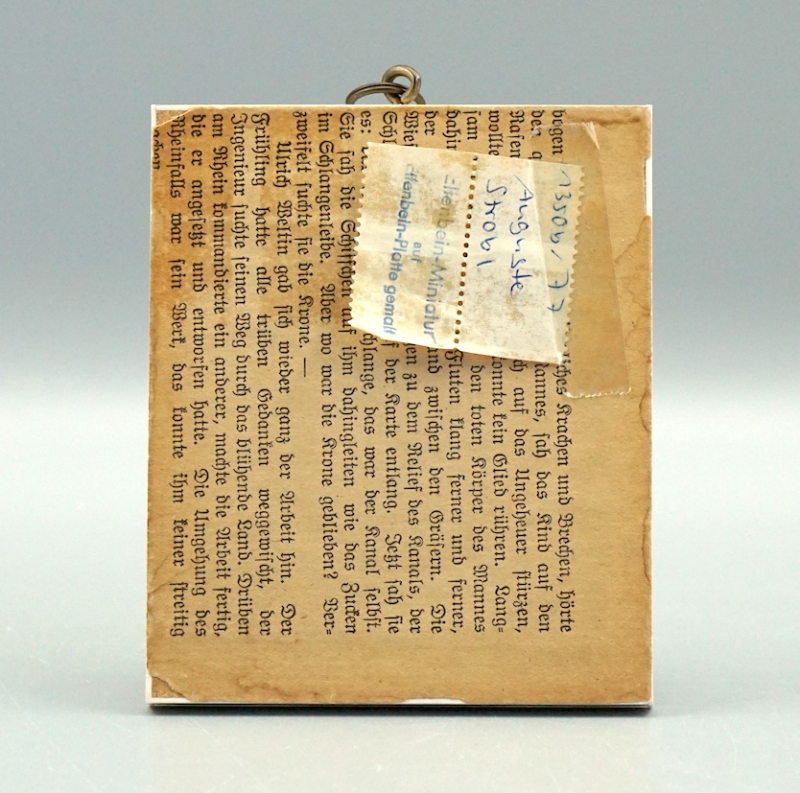 13506/77
Auguste
Strobl
Elfenbein-Miniatur
auf
Elfenbein-Platte gemalt
bogen liches Krachen und Brechen, hörte
den Mannes, sah das Kind auf den
Rasen auf das Ungeheuer stürzen,
wollte konnte kein Glied rühren. Lang=
sam den toten Körper des Mannes
dahin Fluten klang ferner und ferner,
der und zwischen den Gräsern. Die
zu dem Relief des Kanals, der
der Karte entlang. Jetzt sah sie
es: Schlange, das war der Kanal selbst.
Sie sah die Schiffchen auf ihm dahingleiten wie das Zucken
im Schlangenleibe. Aber wo war die Krone geblieben? Ver=
zweifelt suchte sie die Krone. —
Ulrich Weltin gab sich wieder ganz der Arbeit hin. Der
Frühling hatte alle trüben Gedanken weggewischt, der
Ingenieur suchte seinen Weg durch das blühende Land. Drüben
am Rhein kommandierte ein anderer, machte die Arbeit fertig,
die er angesetzt und entworfen hatte. Die Umgehung des
Rheinfalls war sein Werk, das konnte ihm keiner streitig